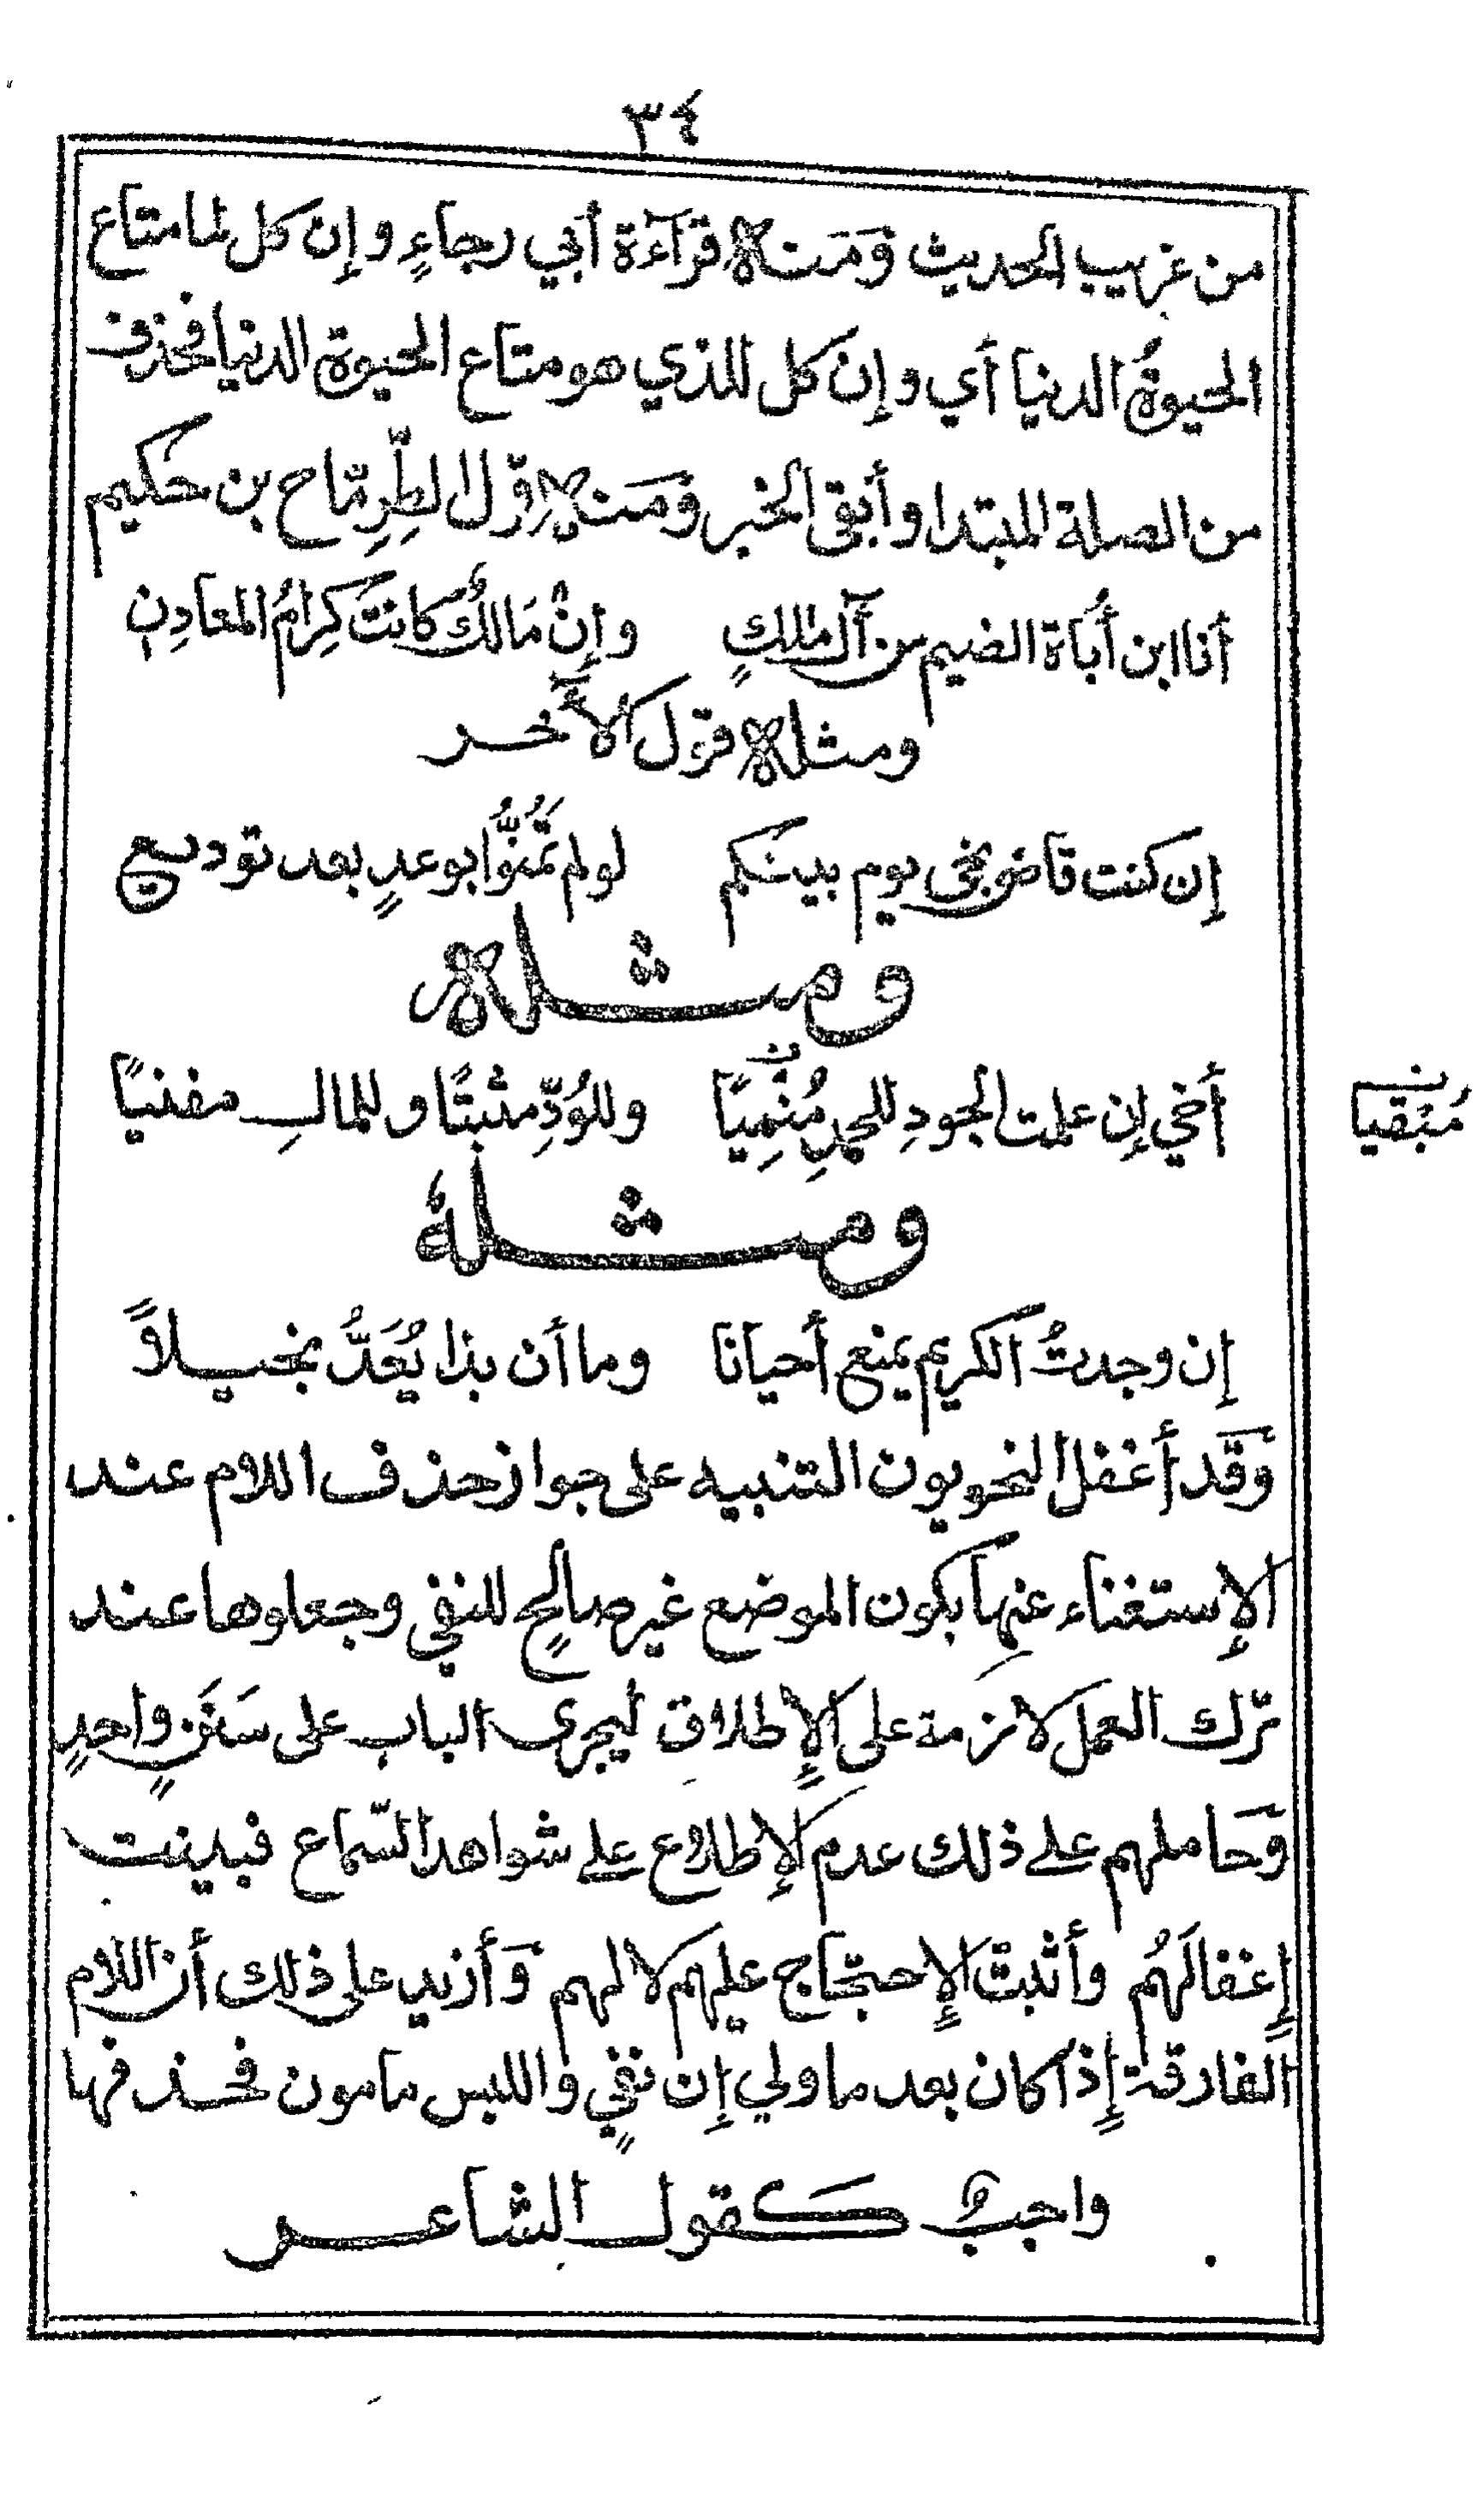 ٣٤
من غريب الحديث وَمَنه قرآءة أبي رجاءٍ وإن كل لما متاع
الحيوةُ الدنيا أي وإن كل للذي هو متاع الحيوة الدنيا فحذف
من الصلة المبتدا وأبقى الخبر ومنه قول الطِّرِمّاح بن حكيم
أنا ابن أُباة الضيم من آل مالكٍ وإنْ مَالكُ كانتَ كِرامُ المعادِنِ
ومثله قول الآخر
إن كنت قاضي نحبى يوم بينكم لو لم تَمُنُّوا بوعدٍ بعد توديع
ومثله
أخي إن علمت الجودِ للحمدِ مُنْمِيًا وللوُدِّ مثبتًا وللمالِ مفنيًا
مُبْقيا
ومثلهُ
إن وجدتُ الكريم يمنع أحيانا وما أن بذا يُعَدُّ بخيلاً
وَقَد أغفل النحويون التنبيه على جواز حذف اللام عند
الإستغناء عنها بكون الموضع غير صالحٍ للنفي وجعلوها عند
ترك العمل لازمة على الإطلاق ليجرى الباب على سَنَنٍ واحدٍ
وَحاملهم على ذلك عدم الإطلاع على شواهد السّماع فبينت
إغفالَهُم وأثبت الإحتجاج عليهم لا لهم وَأزيد على ذلك أن اللام
الفارقة إذا كان بعد ما ولي إن نفيٍ واللبس مامون فحذفها
واجبٌ كقول الشاعر